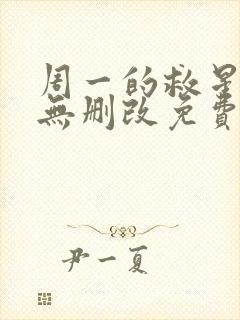 周一的救星
無刪改免費
尹一夏